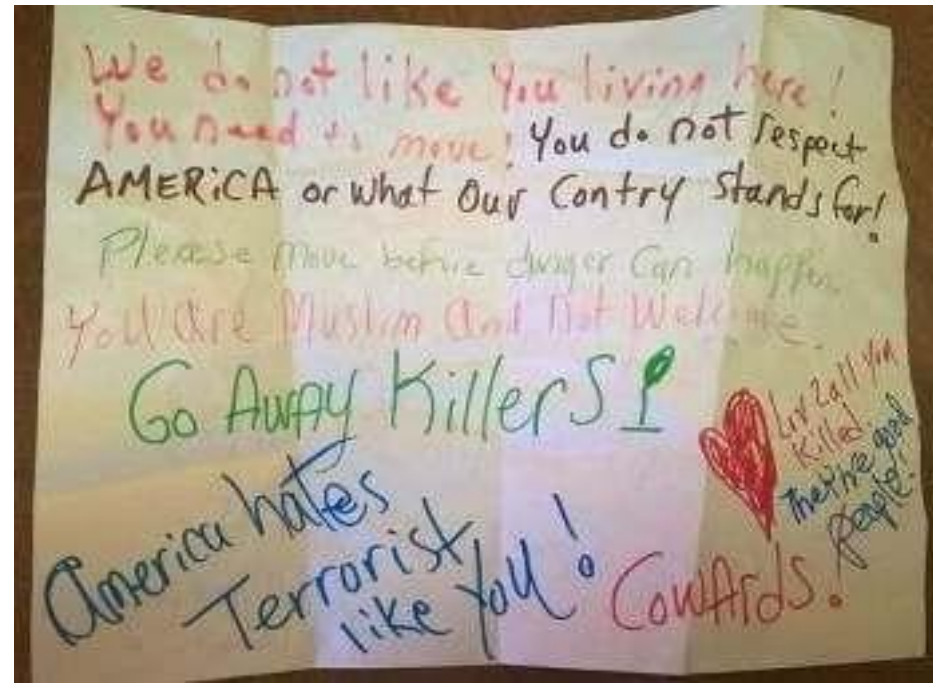 We do not like You living here!
You need to move! You do not respect
AMERiCA or what Our Contry Stands for!
Please move before danger Can happen.
You Are Muslim And Not Welcome.
Go Away KillerS!
America hates
Terrorist
like You!
Luv 2 all you
Killed
good
people!
CowArds!